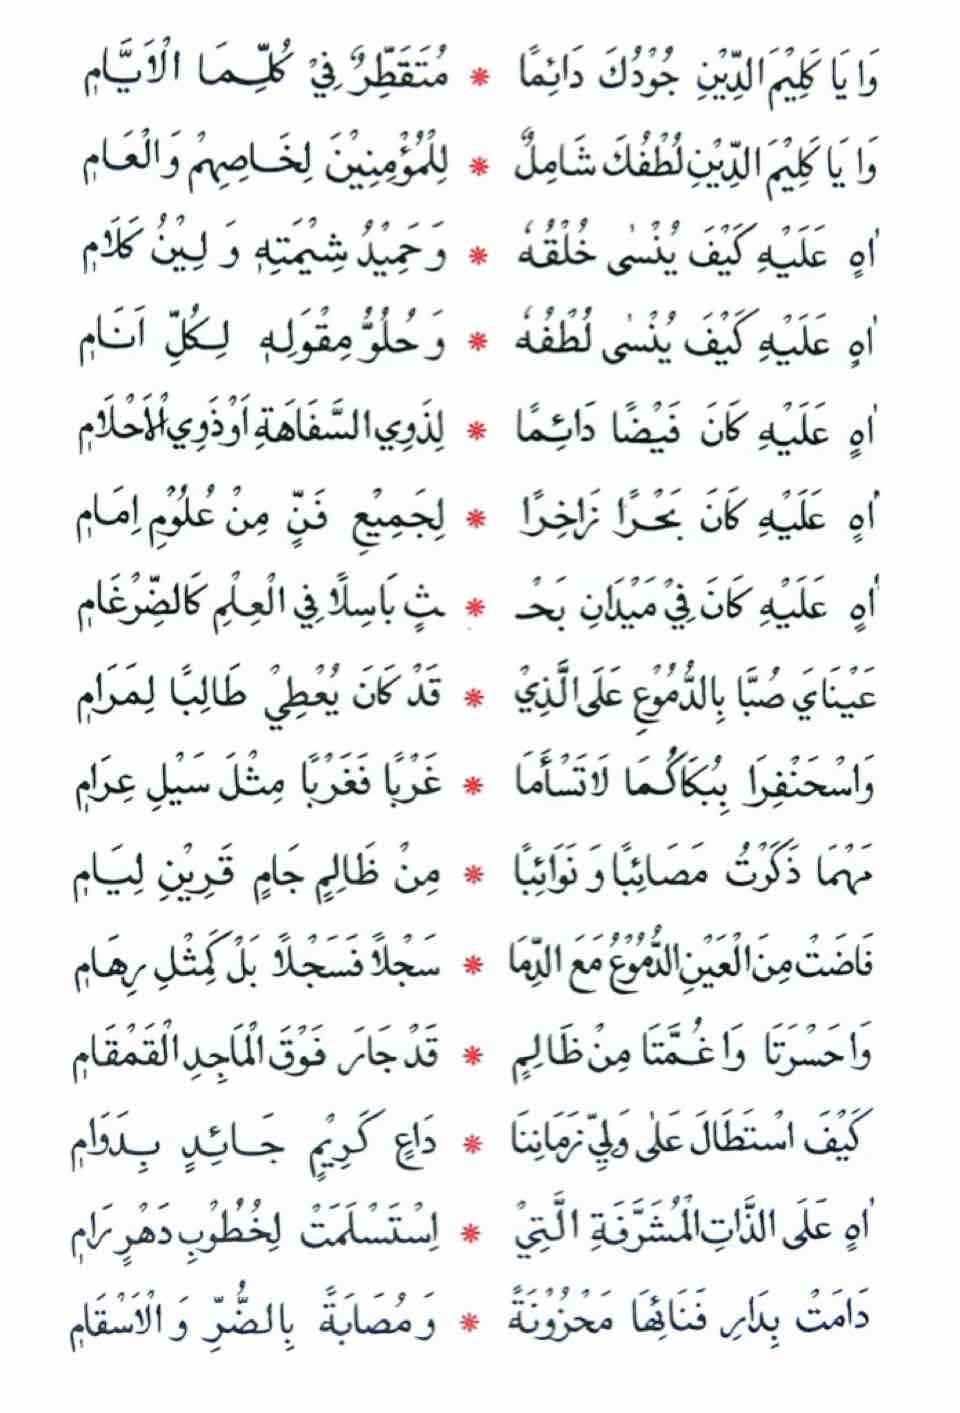 وَا يَا كَلِيْمَ الدِّيْنِ جُوْدُكَ دَائِمًا * مُتَقَطِّرٌ فِيْ كُلِّمَا الْاَيَّامِ
وَا يَا كَلِيْمَ الدِّيْنِ لُطْفُكَ شَامِلٌ * لِلْمُؤْمِنِيْنَ لِخَاصِهِمْ وَالْعَامِ
اٰهٍ عَلَيْهِ كَيْفَ يُنْسٰى خُلْقُهٗ * وَحَمِيْدُ شِيْمَتِهٖ وَ لِيْنُ كَلَامِ
اٰهٍ عَلَيْهِ كَيْفَ يُنْسٰى لُطْفُهٗ * وَحُلُوُّ مِقْوَلِهٖ لِكُلِّ اَنَامِ
اٰهٍ عَلَيْهِ كَانَ فَيْضًا دَائِمًا * لِذَوِي السَّفَاهَةِ اَوْ ذَوِي الْاَحْلَامِ
اٰهٍ عَلَيْهِ كَانَ بَحْرًا زَاخِرًا * لِجَمِيْعِ فَنٍّ مِنْ عُلُوْمِ اِمَامِ
اٰهٍ عَلَيْهِ كَانَ فِيْ مَيْدَانِ بَحْـ * ـثٍ بَاسِلًا فِي الْعِلْمِ كَالضِّرْغَامِ
عَيْنَايَ صُبَّا بِالدُّمُوْعِ عَلَى الَّذِيْ * قَدْ كَانَ يُعْطِيْ طَالِبًا لِمَرَامِ
وَاسْحَنْفِرَا بِبُكَاكُمَا لَا تَسْأَمَا * غَرْبًا فَغَرْبًا مِثْلَ سَيْلِ عِرَامِ
مَهْمَا ذَكَرْتُ مَصَائِبًا وَ نَوَائِبًا * مِنْ ظَالِمٍ جَامٍ قَرِيْنِ لِيَامِ
فَاضَتْ مِنَ الْعَيْنِ الدُّمُوْعُ مَعَ الدِّمَا * سَجْلًا فَسَجْلًا بَلْ كَمِثْلِ رِهَامِ
وَا حَسْرَتَا وَا غُمَّتَا مِنْ ظَالِمٍ * قَدْ جَارَ فَوْقَ الْمَاجِدِ الْقَمْقَامِ
كَيْفَ اسْتَطَالَ عَلٰى وَلِيِّ زَمَانِنَا * دَاعٍ كَرِيْمٍ جَائِدٍ بِدَوَامِ
اٰهٍ عَلَى الذَّاتِ الْمُشَرَّفَةِ الَّتِيْ * اِسْتَسْلَمَتْ لِخُطُوْبِ دَهْرٍ رَامِ
دَامَتْ بِدَارِ فَنَائِهَا مَحْزُوْنَةً * وَمُصَابَةً بِالضُّرِّ وَ الْاَسْقَامِ